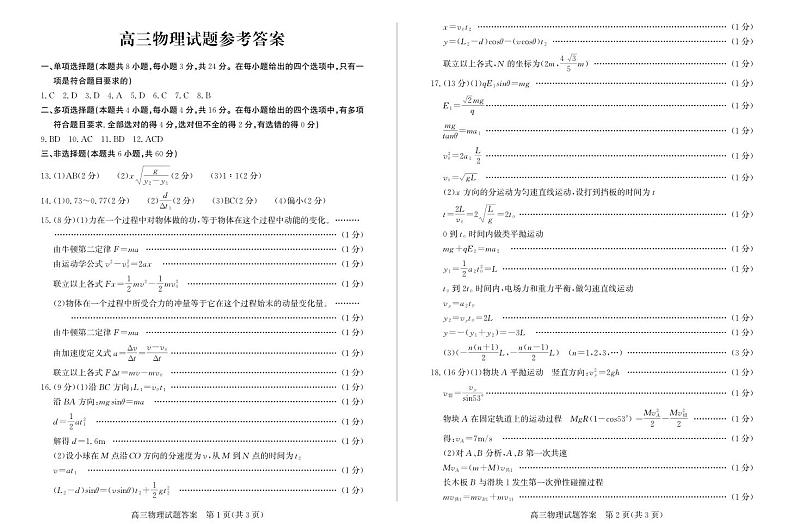 高三物理试题参考答案
一、单项选择题(本题共 8 小题,每小题 3 分,共 24 分。在每小题给出的四个选项中,只有一
项是符合题目要求的)
1. C 2. D 3. D 4. A 5. D 6. C 7. C 8. B
二、多项选择题(本题共 4 小题,每小题 4 分,共 16 分。在每小题给出的四个选项中,有多项
符合题目要求。全部选对的得 4 分,选对但不全的得 2 分,有选错的得 0 分)
9. BD 10. AC 11. BD 12. ACD
三、非选择题(本题共 6 小题,共 60 分)
13. (1)AB(2 分) (2)x√(g/(y₂−y₁))(2 分) (3)1∶1(2 分)
14. (1)0.73~0.77(2 分) (2)d/Δt₁(2 分) (3)BC(2 分) (4)偏小(2 分)
15. (8 分)(1)力在一个过程中对物体做的功,等于物体在这个过程中动能的变化。 ………
…… (1 分)
由牛顿第二定律 F=ma …… (1 分)
由运动学公式 v²−v₀²=2ax …… (1 分)
联立以上各式 Fx=1/2mv²−1/2mv₀² …… (1 分)
(2)物体在一个过程中所受合力的冲量等于它在这个过程始末的动量变化量。 ………
…… (1 分)
由牛顿第二定律 F=ma …… (1 分)
由加速度定义式 a=Δv/Δt=(v−v₀)/Δt …… (1 分)
联立以上各式 FΔt=mv−mv₀ …… (1 分)
16. (9 分)(1)沿 BC 方向:L₁=v₀t₁ …… (1 分)
沿 BA 方向:mgsinθ=ma …… (1 分)
d=1/2at₁² …… (1 分)
解得 d=1.6m …… (1 分)
(2)设小球在 M 点沿 CO 方向的分速度为 v,从 M 到 N 点的时间为 t₂
v=at₁ …… (1 分)
(L₂−d)sinθ=(vsinθ)t₂+1/2gt₂² …… (1 分)
高三物理试题答案 第 1 页(共 3 页)
x=v₀t₂ …… (1 分)
y=(L₂−d)cosθ−(vcosθ)t₂ …… (1 分)
联立以上各式,N 的坐标为(2m,4√3/5m) …… (1 分)
17. (13 分)(1)qE₁sinθ=mg …… (1 分)
E₁=√2mg/q …… (1 分)
mg/tanθ=ma₁ …… (1 分)
v₀²=2a₁L/2 …… (1 分)
v₀=√gL …… (1 分)
(2)x 方向的分运动为匀速直线运动,设打到挡板的时间为 t
t=2L/v₀=2√(L/g)=2t₀ …… (1 分)
0 到 t₀ 时间内做类平抛运动
mg+qE₂=ma₂ …… (1 分)
y₁=1/2a₂t₀²=L …… (1 分)
t₀ 到 2t₀ 时间内,电场力和重力平衡,做匀速直线运动
vᵧ=a₂t₀
y₂=vᵧt₀=2L …… (1 分)
y=−(y₁+y₂)=−3L …… (1 分)
(3)(−n(n+1)/2L,−n(n−1)/2L) (n=1,2,3,…) …… (3 分)
18. (16 分)(1)物块 A 平抛运动 竖直方向:vᵧ²=2gh …… (1 分)
=vᵧ/sin53° …… (1 分)
物块 A 在固定轨道上的运动过程 MgR(1−cos53°) …… (1 分)
得:v_A=7m/s …… (1 分)
(2)对 A、B 分析,A、B 第一次共速
Mv_A=(m+M)v共₁ …… (1 分)
长木板 B 与滑块 1 发生第一次弹性碰撞过程
…… (1 分)
高三物理试题答案 第 2 页(共 3 页)